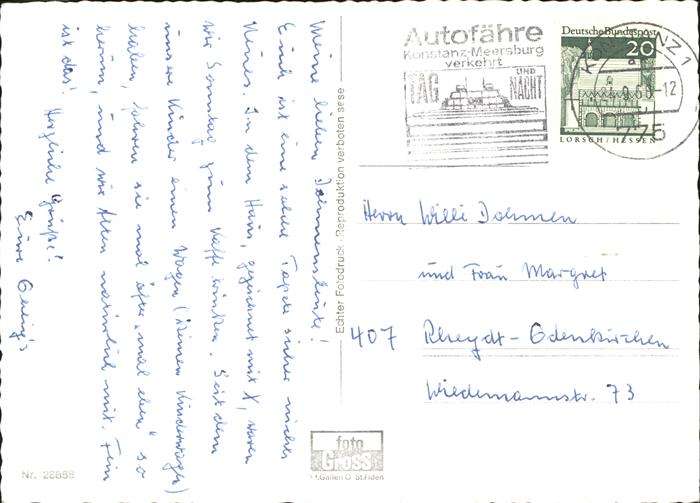 Meine lieben Dahmensleute!
Euch ist eine solche Tapete sicher nichts
Neues. In dem Haus, gezeichnet mit X, waren
wir Sonntag zum Kaffe trinken. Seit dem
unsere Kinder einen Wagen (keinen Kinderwagen)
haben, fahren sie mal öfter "mal eben" so
herum, und wir Alten natürlich mit. Fein
ist das! Herzliche Grüße!
Eure
Nr. 22858
Echter Fotodruck · Reproduktion verboten
foto
Gross
St. Gallen O St. Fiden
Autofähre
Konstanz-Meersburg
verkehrt
TAG UND NACHT
Deutsche Bundespost
20
LORSCH/HESSEN
NZ 1
775
Herrn Willi Dahmen
und Frau Margret
407 Rheydt-Odenkirchen
Wiedemannstr. 73